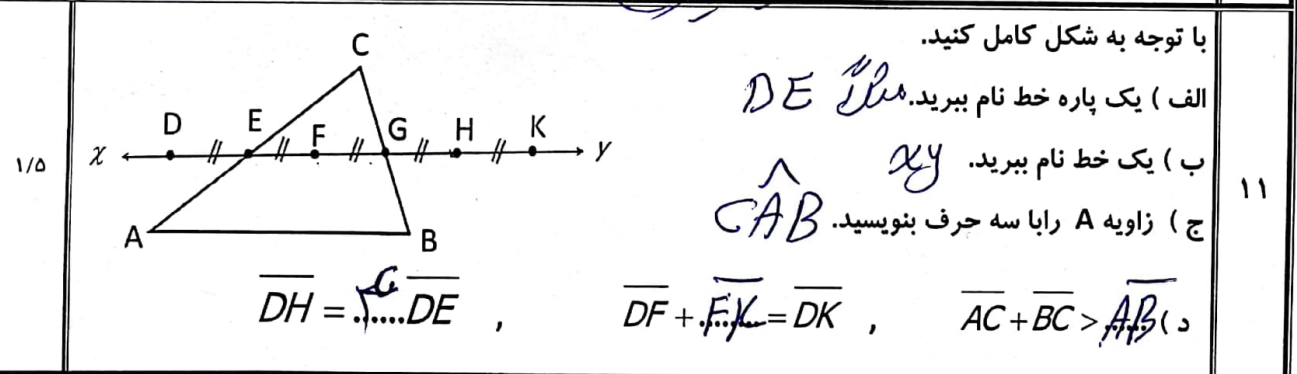 با توجه به شکل کامل کنید.
۱۱
الف ) یک پاره خط نام ببرید. مثلاً DE
ب ) یک خط نام ببرید. xy
ج ) زاویه A رابا سه حرف بنویسید. CÂB
د ) AC + BC > AB , DF + FK = DK , DH = ۴ DE
۱/۵
C
D E F G H K
x y
A B